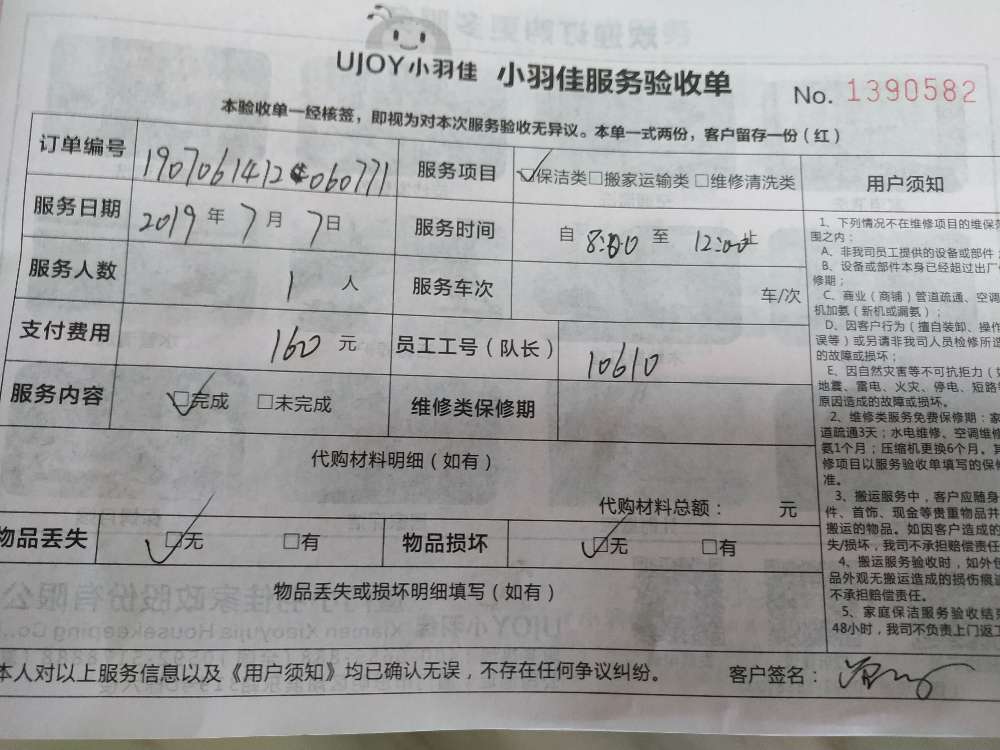 UJOY小羽佳 小羽佳服务验收单
No. 1390582
本验收单一经核签，即视为对本次服务验收无异议。本单一式两份，客户留存一份（红）
订单编号 服务项目 保洁类□搬家运输类□维修清洗类
服务日期 2019年7月7日 服务时间 自 8:00 至 12:00止
服务人数 1人 服务车次 车/次
支付费用 160元 员工工号（队长） 10610
服务内容 □完成 □未完成 维修类保修期
代购材料明细（如有）
代购材料总额： 元
物品丢失 □无 □有 物品损坏 □无 □有
物品丢失或损坏明细填写（如有）
本人对以上服务信息以及《用户须知》均已确认无误，不存在任何争议纠纷。 客户签名：
用户须知
1、下列情况不在维修项目的维保范
围之内：
A、非我司员工提供的设备或部件
B、设备或部件本身已经超过出厂
修期；
C、商业（商铺）管道疏通、空调
机加氨（新机或漏氨）；
D、因客户行为（擅自装卸、操作
误等）或另请非我司人员检修所造
的故障或损坏；
E、因自然灾害等不可抗拒力（
地震、雷电、火灾、停电、短路
原因造成的故障或损坏。
2、维修类服务免费保修期：家
道疏通3天；水电维修、空调维修
氨1个月；压缩机更换6个月。其
修项目以服务验收单填写的保
准。
3、搬运服务中，客户应随身
件、首饰、现金等贵重物品并
搬运的物品。如因客户造成的
失/损坏，我司不承担赔偿责任
4、搬运服务验收时，如外包
品外观无搬运造成的损伤痕迹
不承担赔偿责任。
5、家庭保洁服务验收结
48小时，我司不负责上门返工